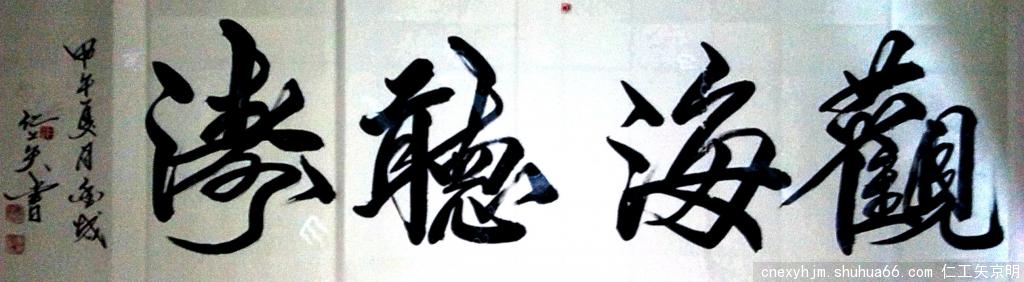 觀海聽濤
甲午夏月金城
仁工矢書
cnexyhjm.shuhua66.com 仁工矢京明